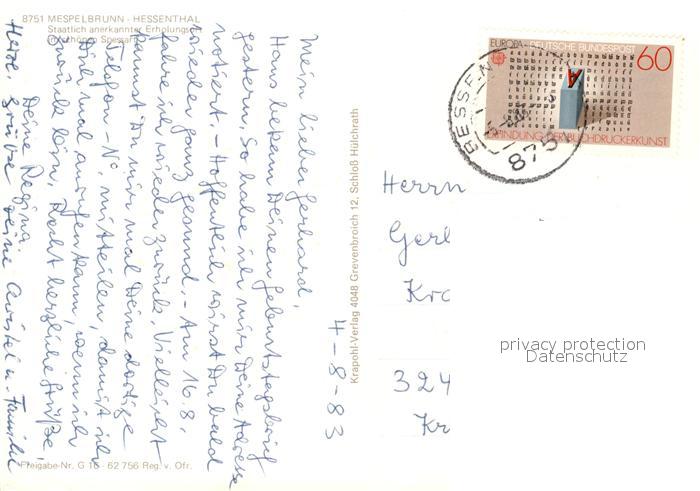 8751 MESPELBRUNN - HESSENTHAL
Staatlich anerkannter Erholungsort
im schönen Spessart
4-8-83
Mein lieber Gerhard,
Haus bekam Deinen Geburtstagsbrief
gestern. So habe ich mir Deine Adresse
notiert. - Hoffentlich wirst Du bald
wieder ganz gesund. - Am 16.8.
fahre ich wieder zurück. Vielleicht
kannst Du mir mal Deine dortige
Telefon-Nr. mitteilen, damit ich
Dich mal anrufen kann, wenn ich
zurück bin. Recht herzliche Grüße,
Deine Regina.
Herzl. Grüße Deine Christel u. Familie
Krapohl-Verlag 4048 Grevenbroich 12, Schloß Hülchrath
Freigabe-Nr. G 16 - 62 756 Reg. v. Ofr.
EUROPA - DEUTSCHE BUNDESPOST
60
ERFINDUNG DER BUCHDRUCKERKUNST
A
875
Herrn
Ger
Kr
privacy protection
Datenschutz
324
Kr